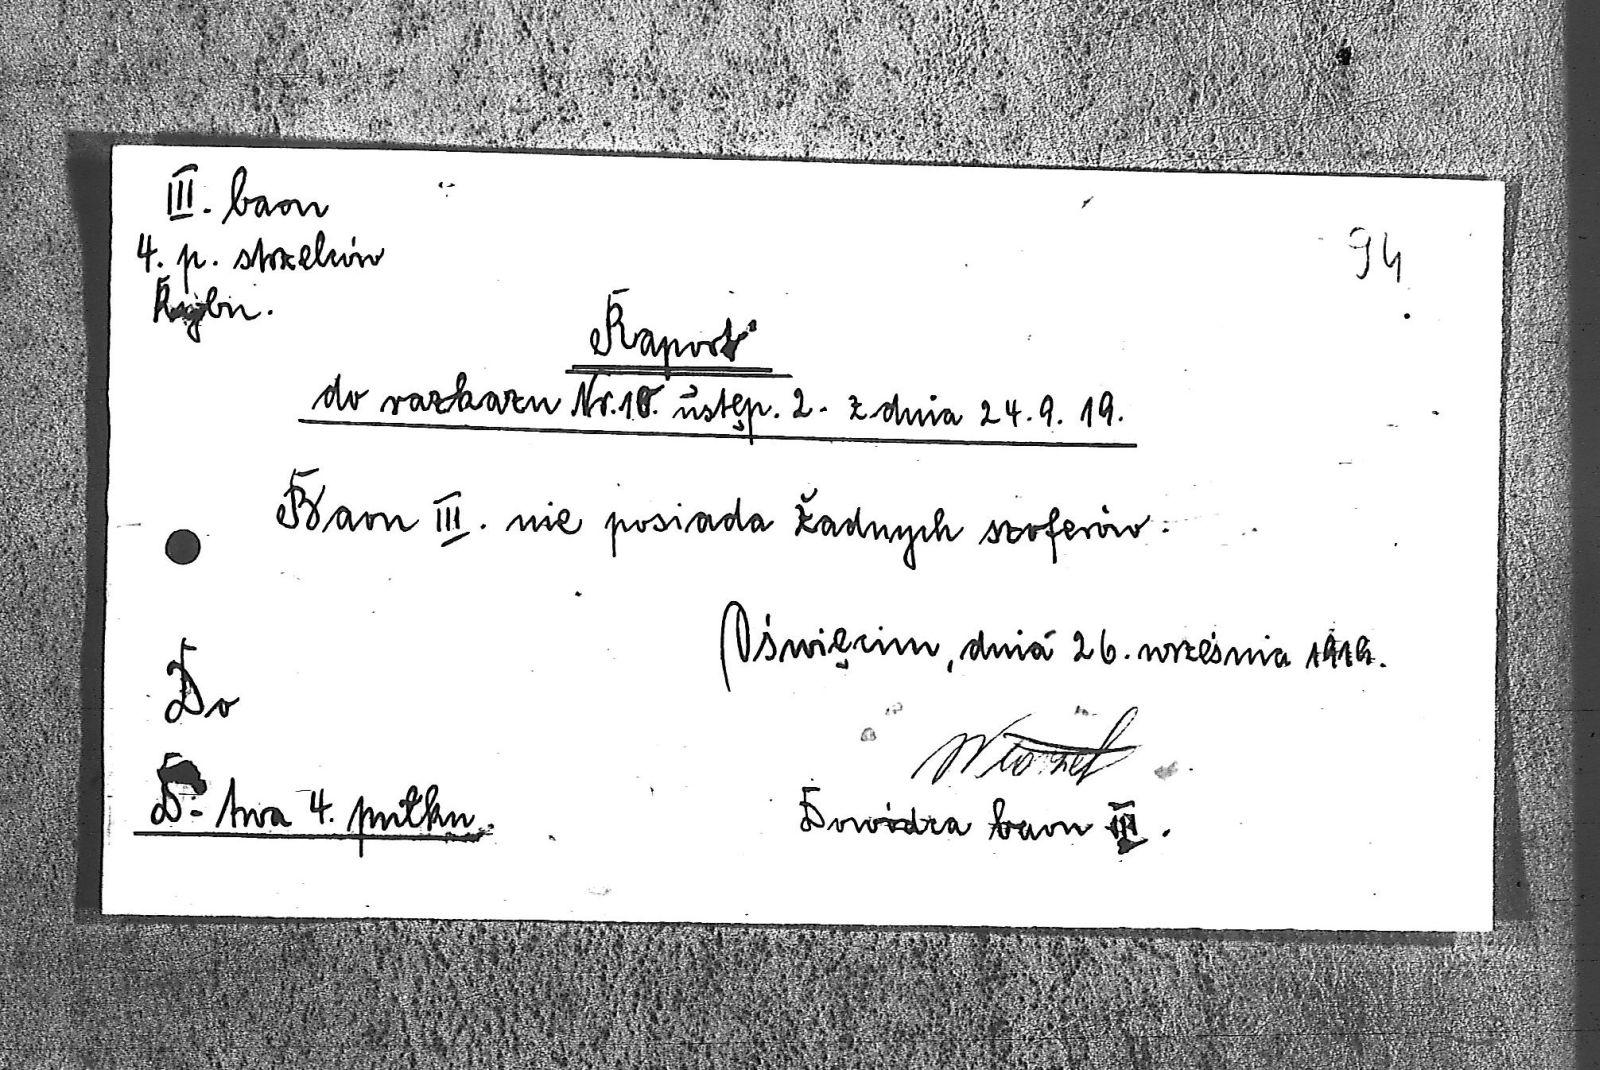 III. baon
94
4. p. strzelców
Rybn.
Raport
do rozkazu Nr. 18. ustęp. 2. z dnia 24.9.19.
Baon III. nie posiada żadnych szoferów.
Oświęcim, dnia 26. września 1919.
Do
D-twa 4. pułku.
Dowódca baon III.